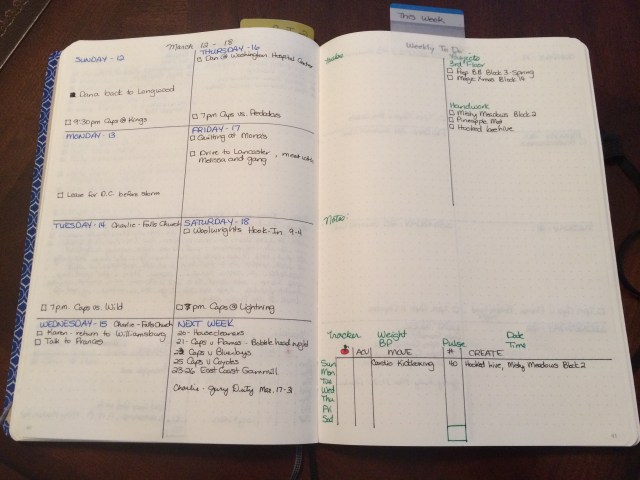 This Week
March 12 - 18
SUNDAY - 12
Dana back to Longwood
9:30pm Caps @ Kings
MONDAY - 13
Leave for D.C. before storm
TUESDAY - 14 Charlie - Falls Church
7pm. Caps vs. Wild
WEDNESDAY - 15 Charlie - Falls Church
Karen - return to Williamsburg
Talk to Frances
THURSDAY - 16
Dan @ Washington Hospital Center
7pm Caps vs. Predators
FRIDAY - 17
Quilting at Mona's
Drive to Lancaster, meet with
Melissa and gang
SATURDAY - 18
Woolwrights Hook-In 9-4
7pm. Caps @ Lightning
NEXT WEEK
20 - Housecleaners
21 - Caps v Flames - Bobble head night
Caps v Blue Jays
25 Caps v Coyotes
23-26 East Coast
Charlie - Jury Duty Mar. 17-31
Weekly To Do
Projects
3rd Floor
Prep BB Block 3 - Spring
Magic Xmas Block 14
Handwork
Misty Meadows Block 2
Pineapple Mat
Hooked beehive
Notes:
Tracker Weight Date
BP Pulse Time
ACV MOVE # CREATE
Sun Cardio Kickboxing 40 Hooked hive, Misty Meadows Block 2
Mon
Tue
Wed
Thu
Fri
Sat